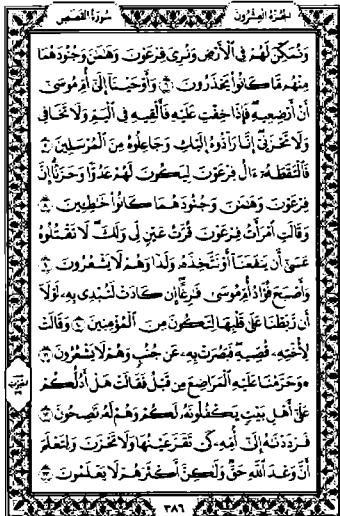 سُورَةُ القَصَصِ
الجُزْءُ العِشْرُونَ
وَنُمَكِّنَ لَهُمْ فِي ٱلْأَرْضِ وَنُرِيَ فِرْعَوْنَ وَهَٰمَٰنَ وَجُنُودَهُمَا
مِنْهُم مَّا كَانُوا۟ يَحْذَرُونَ ٦ وَأَوْحَيْنَآ إِلَىٰٓ أُمِّ مُوسَىٰٓ
أَنْ أَرْضِعِيهِ فَإِذَا خِفْتِ عَلَيْهِ فَأَلْقِيهِ فِي ٱلْيَمِّ وَلَا تَخَافِي
وَلَا تَحْزَنِيٓ إِنَّا رَآدُّوهُ إِلَيْكِ وَجَاعِلُوهُ مِنَ ٱلْمُرْسَلِينَ ٧
فَٱلْتَقَطَهُۥٓ ءَالُ فِرْعَوْنَ لِيَكُونَ لَهُمْ عَدُوًّا وَحَزَنًا إِنَّ
فِرْعَوْنَ وَهَٰمَٰنَ وَجُنُودَهُمَا كَانُوا۟ خَٰطِـِٔينَ ٨
وَقَالَتِ ٱمْرَأَتُ فِرْعَوْنَ قُرَّتُ عَيْنٍ لِّي وَلَكَ لَا تَقْتُلُوهُ
عَسَىٰٓ أَن يَنفَعَنَآ أَوْ نَتَّخِذَهُۥ وَلَدًا وَهُمْ لَا يَشْعُرُونَ ٩
وَأَصْبَحَ فُؤَادُ أُمِّ مُوسَىٰ فَٰرِغًا إِن كَادَتْ لَتُبْدِي بِهِۦ لَوْلَآ
أَن رَّبَطْنَا عَلَىٰ قَلْبِهَا لِتَكُونَ مِنَ ٱلْمُؤْمِنِينَ ١٠ وَقَالَتْ
لِأُخْتِهِۦ قُصِّيهِ فَبَصُرَتْ بِهِۦ عَن جُنُبٍ وَهُمْ لَا يَشْعُرُونَ ١١
۞ وَحَرَّمْنَا عَلَيْهِ ٱلْمَرَاضِعَ مِن قَبْلُ فَقَالَتْ هَلْ أَدُلُّكُمْ
عَلَىٰٓ أَهْلِ بَيْتٍ يَكْفُلُونَهُۥ لَكُمْ وَهُمْ لَهُۥ نَٰصِحُونَ ١٢
فَرَدَدْنَٰهُ إِلَىٰٓ أُمِّهِۦ كَيْ تَقَرَّ عَيْنُهَا وَلَا تَحْزَنَ وَلِتَعْلَمَ
أَنَّ وَعْدَ ٱللَّهِ حَقٌّ وَلَٰكِنَّ أَكْثَرَهُمْ لَا يَعْلَمُونَ ١٣
٣٨٦